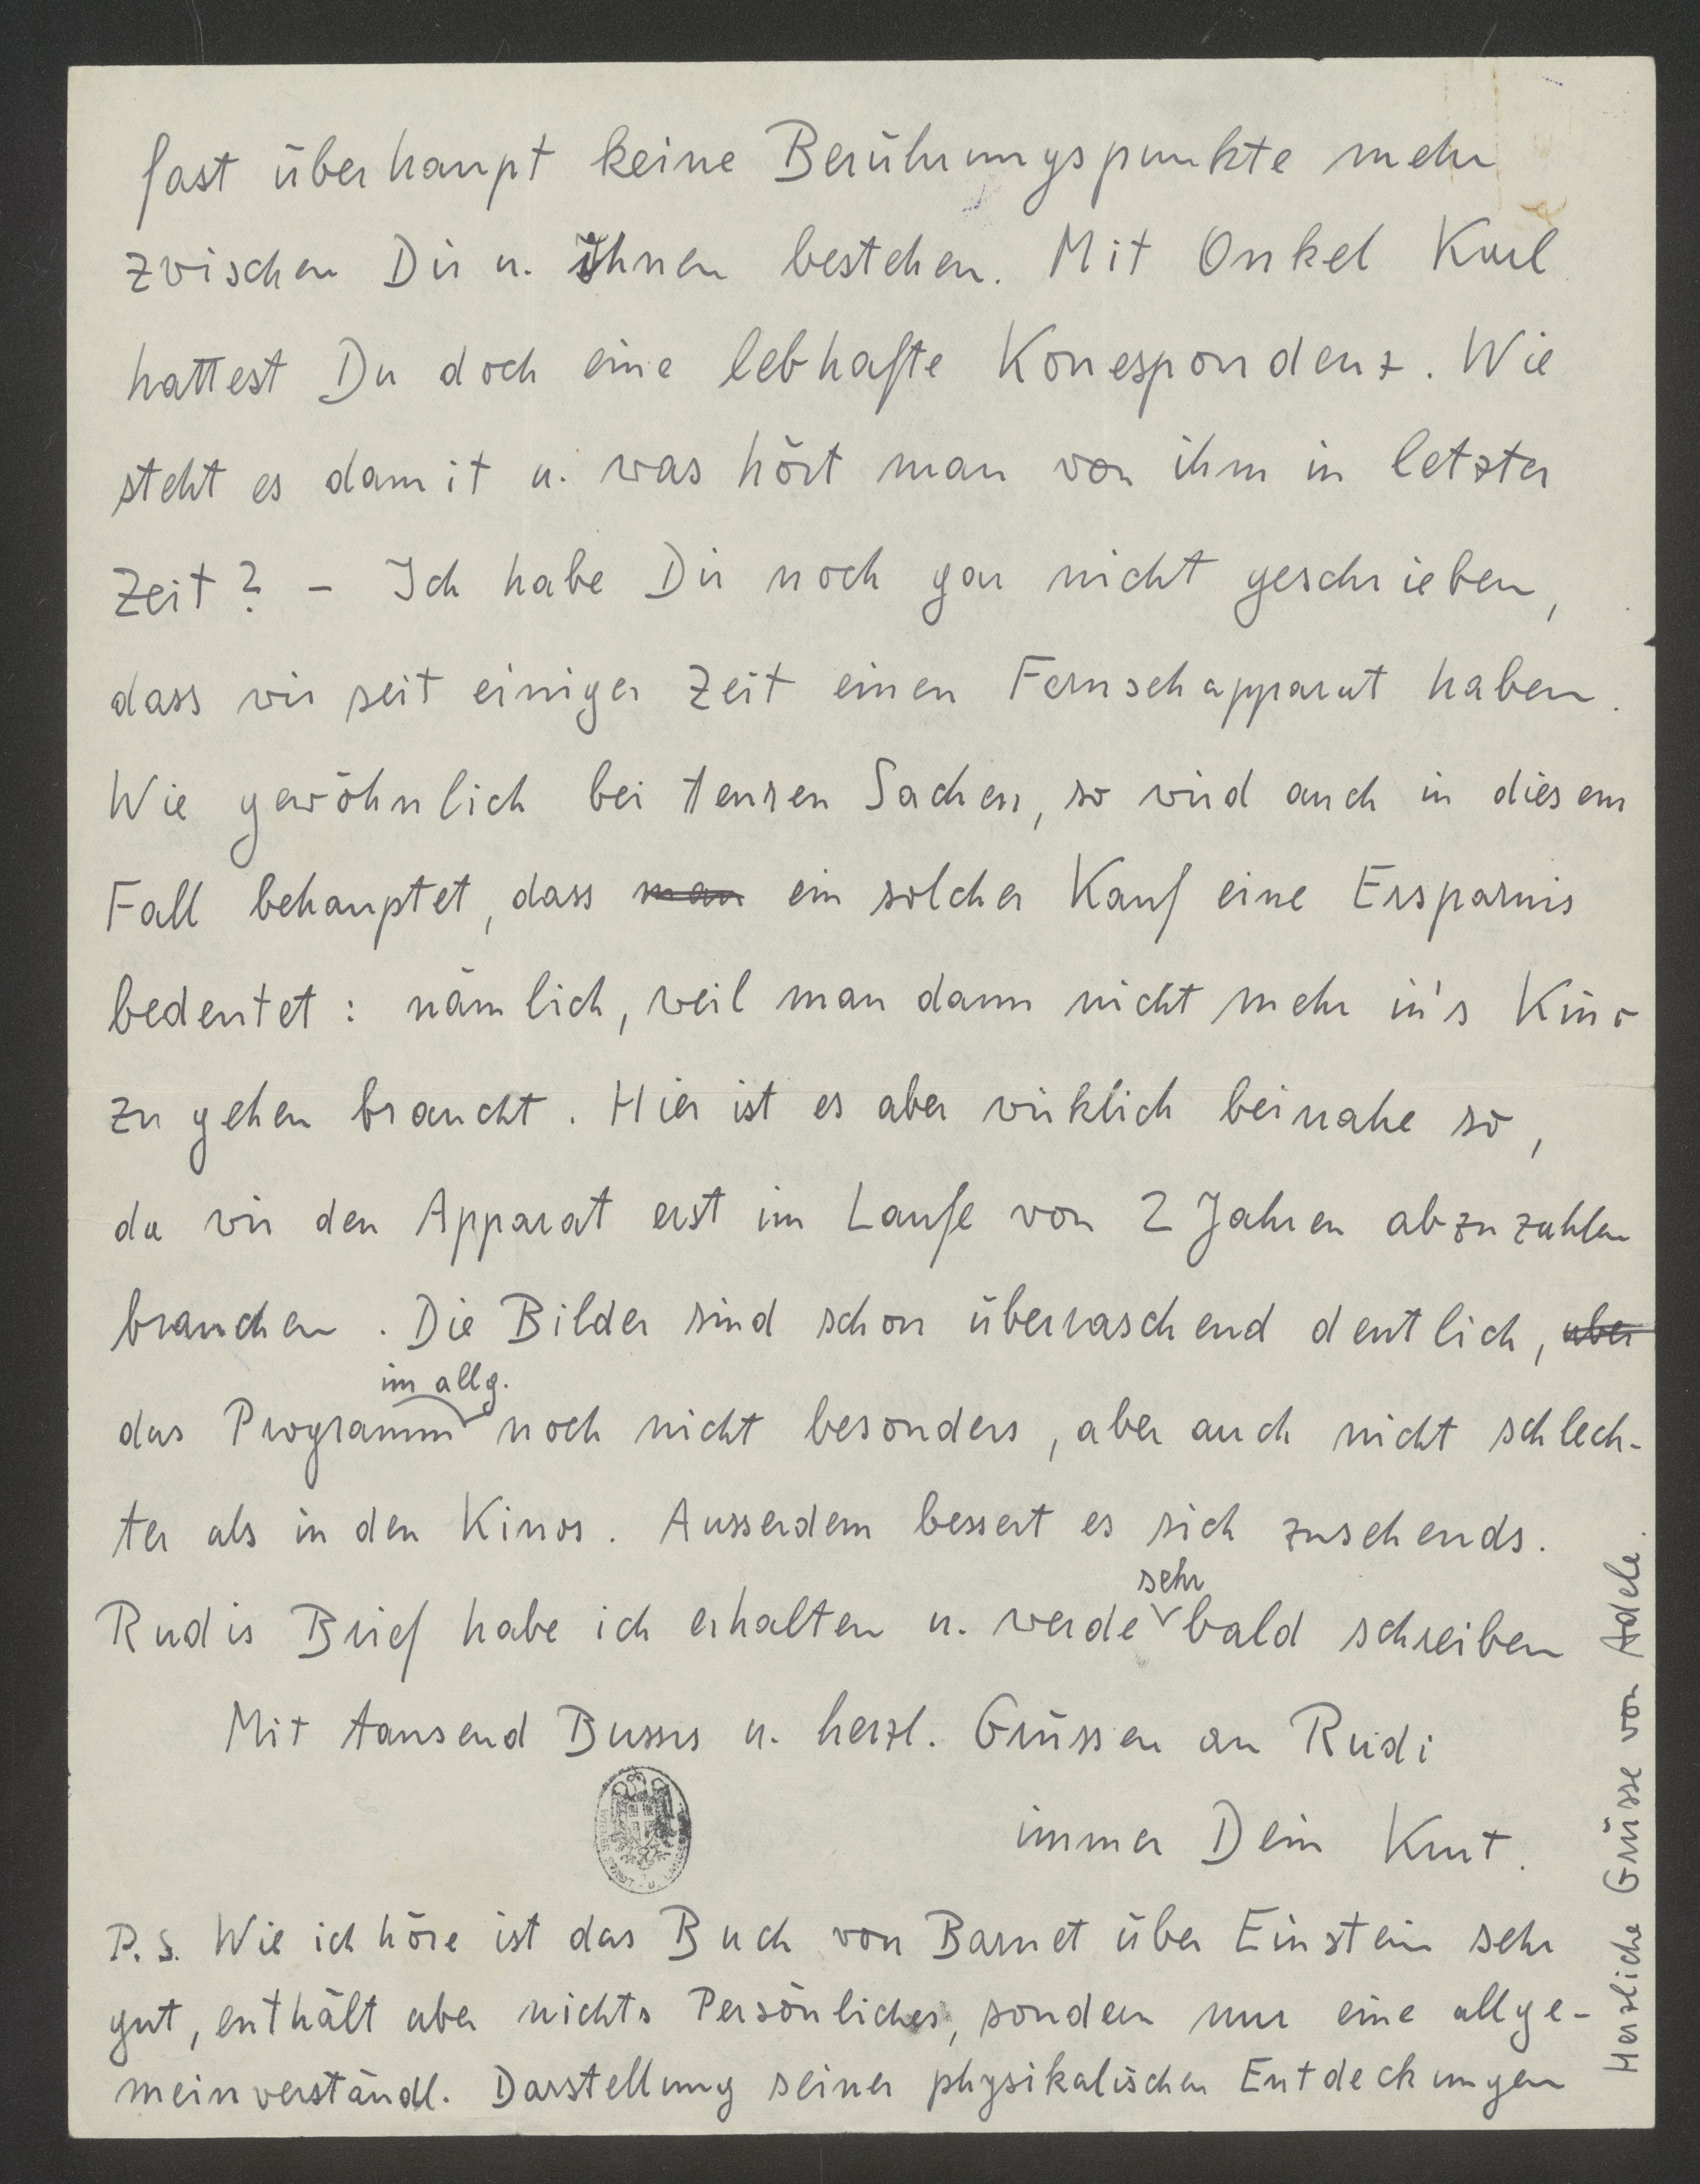 fast überhaupt keine Berührungspunkte mehr
zwischen Dir u. ihnen bestehen. Mit Onkel Karl
hattest Du doch eine lebhafte Korrespondenz. Wie
steht es damit u. was hört man von ihm in letzter
Zeit? - Ich habe Dir noch gar nicht geschrieben,
dass wir seit einiger Zeit einen Fernsehapparat haben.
Wie gewöhnlich bei teuren Sachen, so wird auch in diesem
Fall behauptet, dass man ein solcher Kauf eine Ersparnis
bedeutet: nämlich, weil man dann nicht mehr in's Kino
zu gehen braucht. Hier ist es aber wirklich beinahe so,
da wir den Apparat erst im Laufe von 2 Jahren abzuzahlen
brauchen. Die Bilder sind schon überraschend deutlich, aber
im allg.
das Programm noch nicht besonders, aber auch nicht schlech-
ter als in den Kinos. Ausserdem bessert es sich zusehends.
sehr
Rudis Brief habe ich erhalten u. werde bald schreiben
Mit tausend Bussis u. herzl. Grüssen an Rudi
immer Dein Kurt.
P.S. Wie ich höre ist das Buch von Barnet über Einstein sehr
gut, enthält aber nichts Persönliches, sondern nur eine allge-
meinverständl. Darstellung seiner physikalischen Entdeckungen
Herzliche Grüsse von Adele.